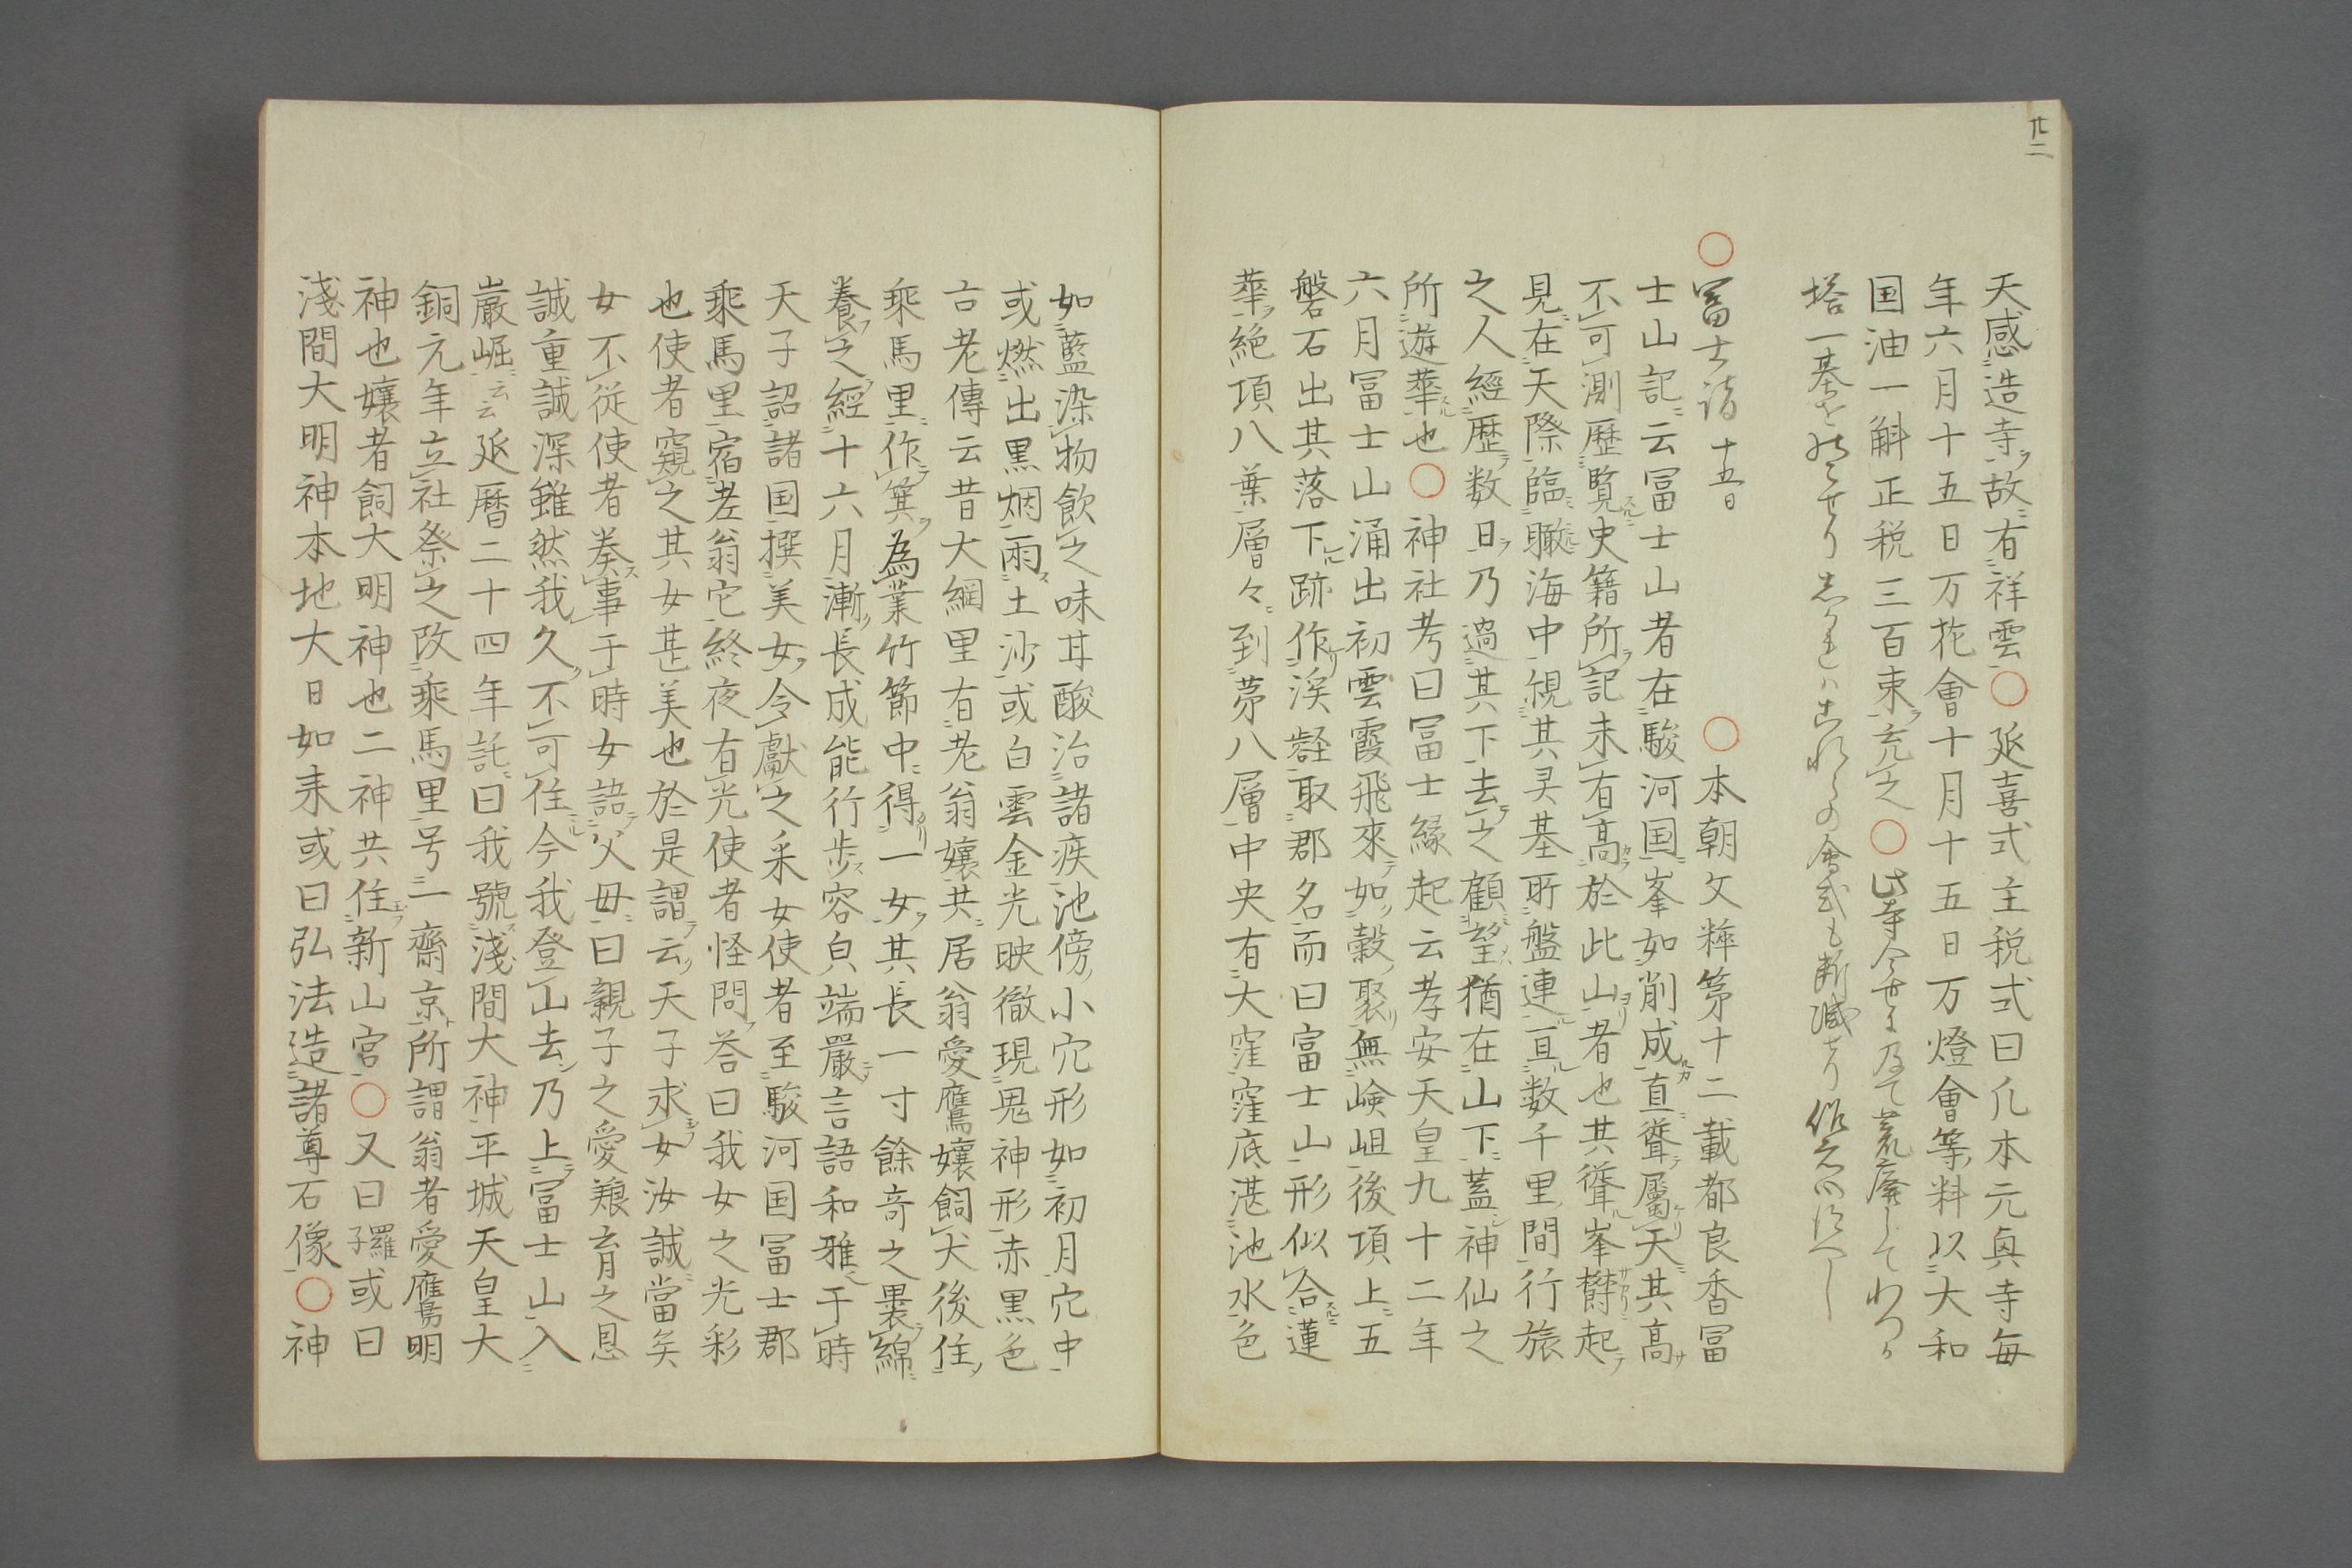 廿二
天感造寺故有祥雲○延喜式主税式曰凡本元興寺毎
年六月十五日万花會十月十五日万燈會等料以大和
国油一斛正税三百束充之○此寺今世に及て荒廃してわつか
塔一基を残せり しかれはこれらの會式も断滅せり
○冨士詣 十五日 ○本朝文粹第十二載都良香冨
士山記云冨士山者在駿河国峯如削成直聳屬天其高
不可測歴覽史籍所記未有高於此山者也其聳峯欝起
見在天際臨瞰海中観其灵基所盤連亘数千里間行旅
之人經歴数日乃過其下去之顧望猶在山下蓋神仙之
所遊萃也○神社考曰冨士縁起云孝安天皇九十二年
六月冨士山涌出初雲霞飛來如穀聚無嶮岨後項上五
磐石出其落下跡作渓壑取郡名而曰富士山形似合蓮
華絶項八葉層々到第八層中央有大窪窪底湛池水色
如藍染物飲之味耳酸治諸疾池傍小穴形如初月穴中
或燃出黒烟雨土沙或白雲金光映徹現鬼神形赤黒色
古老傳云昔大綱里有老翁嬢共居翁愛鷹嬢飼犬後住
乘馬里作箕為業竹節中得一女其長一寸餘竒之裹綿
養之經十六月漸長成能行歩容皃端嚴言語和雅于時
天子詔諸国撰美女令獻之采女使者至駿河国冨士郡
乘馬里宿老翁宅終夜有光使者怪問荅曰我女之光彩
也使者窺之其女甚美也於是謂云天子求女汝誠當矣
女不従使者奏事于時女語父母曰親子之愛養育之恩
誠重誠深雖然我久不可住今我登山去乃上冨士山入
巖崛云云延暦二十四年託曰我號淺間大神平城天皇大
銅元年立社祭之改乘馬里号一齋京所謂翁者愛鷹明
神也嬢者飼犬明神也二神共住新山宮○又曰羅子或曰
淺間大明神本地大日如来或曰弘法造諸尊石像○神